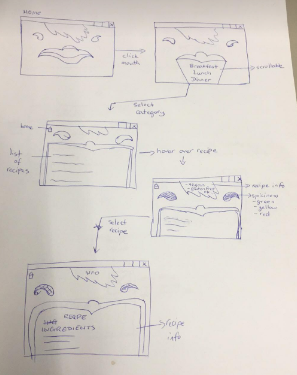 Home
click
mouth
Breakfast
Lunch
Dinner
scrollable
Select
category
list
of
recipes
hover over recipe
recipe info
- green
- yellow
- red
Select
recipe
RECIPE
INGREDIENTS
recipe
info